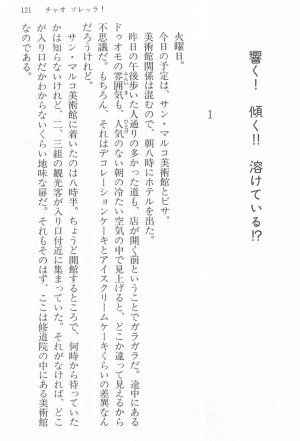 121　チャオ マレッラ！
響く！　傾く!!　溶けている!?
1
火曜日。
今日の予定は、サン・マルコ美術館とピサ。
美術館関係は混むので、朝八時にホテルを出た。
昨日の午後歩いた人通りの多かった道も、店が開く前ということでガラガラだ。途中にある
ドゥオモの雰囲気も、人気のない朝の冷たい空気の中で見上げると、どこか違って見えるから
不思議だ。もちろん、それはデコレーションケーキとアイスクリームケーキくらいの差異なん
だろうけれど。
サン・マルコ美術館に着いたのは八時半。ちょうど開館するところで、何時から待っていた
かは知らないけれど、二、三組の観光客が入り口付近に集まっていた。それがなければ、どこ
が入り口だかわからないくらい地味な扉だ。それもそのはず、ここは修道院の中にある美術館
なのである。